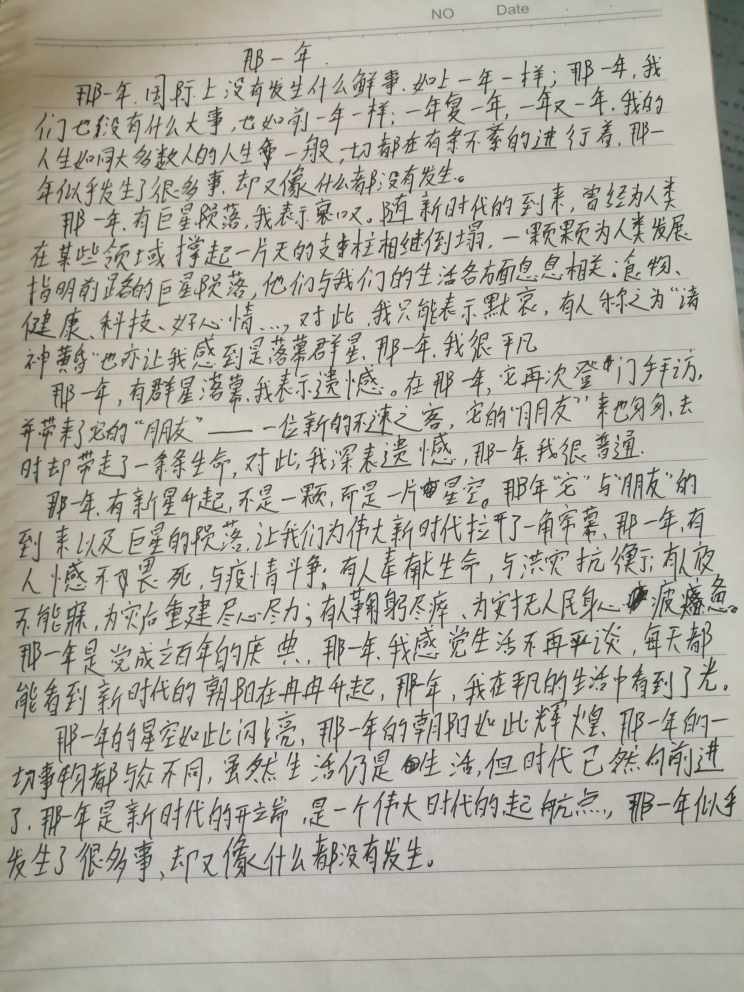 NO Date
那一年.
那一年.国际上没有发生什么鲜事.如上一年一样；那一年,我
们也没有什么大事,也如前一年一样；一年复一年,一年又一年.我的
人生如同大多数人的人生一般,一切都在有条不紊的进行着.那一
年似乎发生了很多事.却又像什么都没有发生。
那一年.有巨星陨落,我表示哀叹。随新时代的到来,曾经为人类
在某些领域撑起一片天的支柱相继倒塌.一颗颗为人类发展
指明前路的巨星陨落,他们与我们的生活各方面息息相关:食物、
健康、科技、好心情...,对此,我只能表示默哀,有人称之为“诸
神黄昏”也亦让我感到是落幕群星.那一年.我很平凡
那一年,有群星落幕.我表示遗憾。在那一年,它再次登门拜访,
并带来了它的“朋友”——一位新的不速之客,它的“朋友”来也匆匆,去
时却带走了一条条生命,对此,我深表遗憾,那一年.我很普通.
那一年.有新星升起,不是一颗,而是一片星空。那年“它”与“朋友”的
到来以及巨星的陨落,让我们为伟大新时代拉开了一角帘幕.那一年,有
人憾不畏死,与疫情斗争;有人奉献生命,与洪灾抗衡;有人夜
不能寐,为灾后重建尽心尽力；有人鞠躬尽瘁、为实扰人民身心疲惫。
那一年是党成立百年的庆典,那一年.我感觉生活不再平淡,每天都
能看到新时代的朝阳在冉冉升起,那一年,我在平凡的生活中看到了光。
那一年的星空如此闪亮,那一年的朝阳如此辉煌.那一年的一
切事物都与众不同,虽然生活仍是生活,但时代已然向前进
了.那一年是新时代的开端,是一个伟大时代的起航点,那一年似乎
发生了很多事,却又像什么都没有发生。